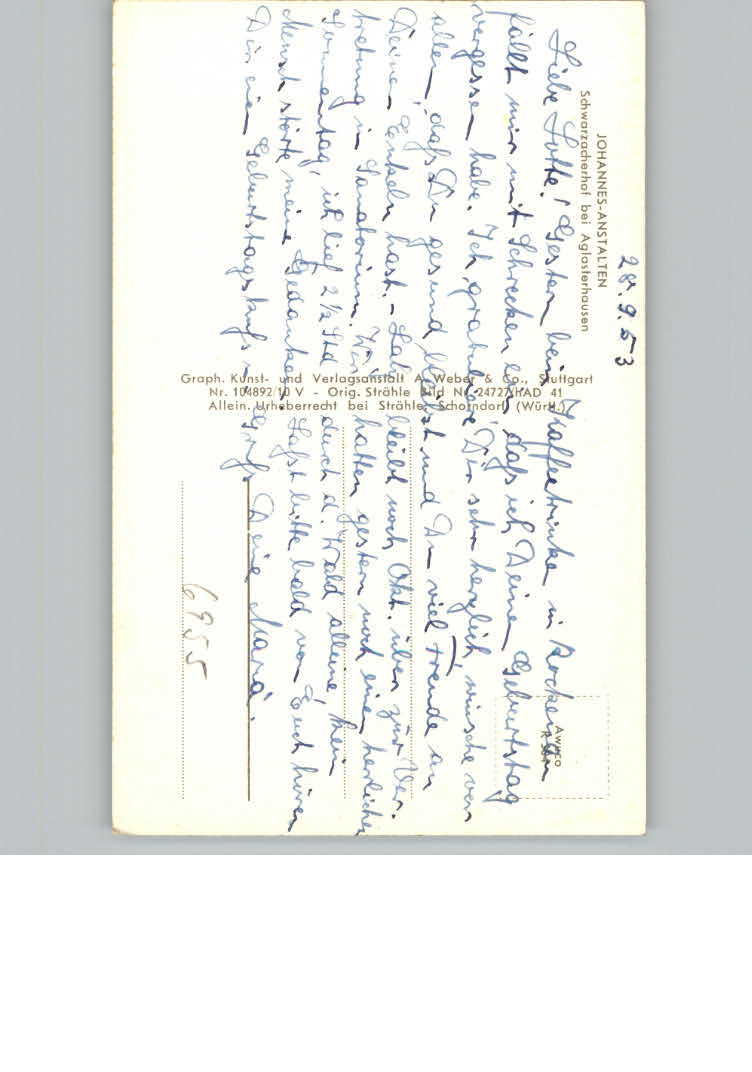 JOHANNES-ANSTALTEN
Schwarzacherhof bei Aglasterhausen
28.9.53
Liebe Lotte! Gestern beim Kaffeetrinken in
fällt mir mit Schrecken ein, daß ich Deinen Geburtstag
vergessen habe. Ich gratuliere Dir sehr herzlich, wünsche vor
allem, daß Du gesund bleibst und Du viel Freude an
Deinen Enkeln hast. – bleibt noch Okt. über zur Ver-
tretung im Sanatorium. Wir hatten gestern noch einen herrlichen
Sonnentag, ich lief 2½ Std durch d. Wald alleine, kein
Mensch störte meine Gedanken. Laßt bitte bald von Euch hören
Dir ein Geburtstagskuß – Gruß Deine Maria.
Graph. Kunst- und Verlagsanstalt A. Weber & Co., Stuttgart
Nr. 104892/10 V - Orig. Strähle Bild Nr. 24727 hAD 41
Allein. Urheberrecht bei Strähle, Schorndorf (Württ.)
Aweco
6955